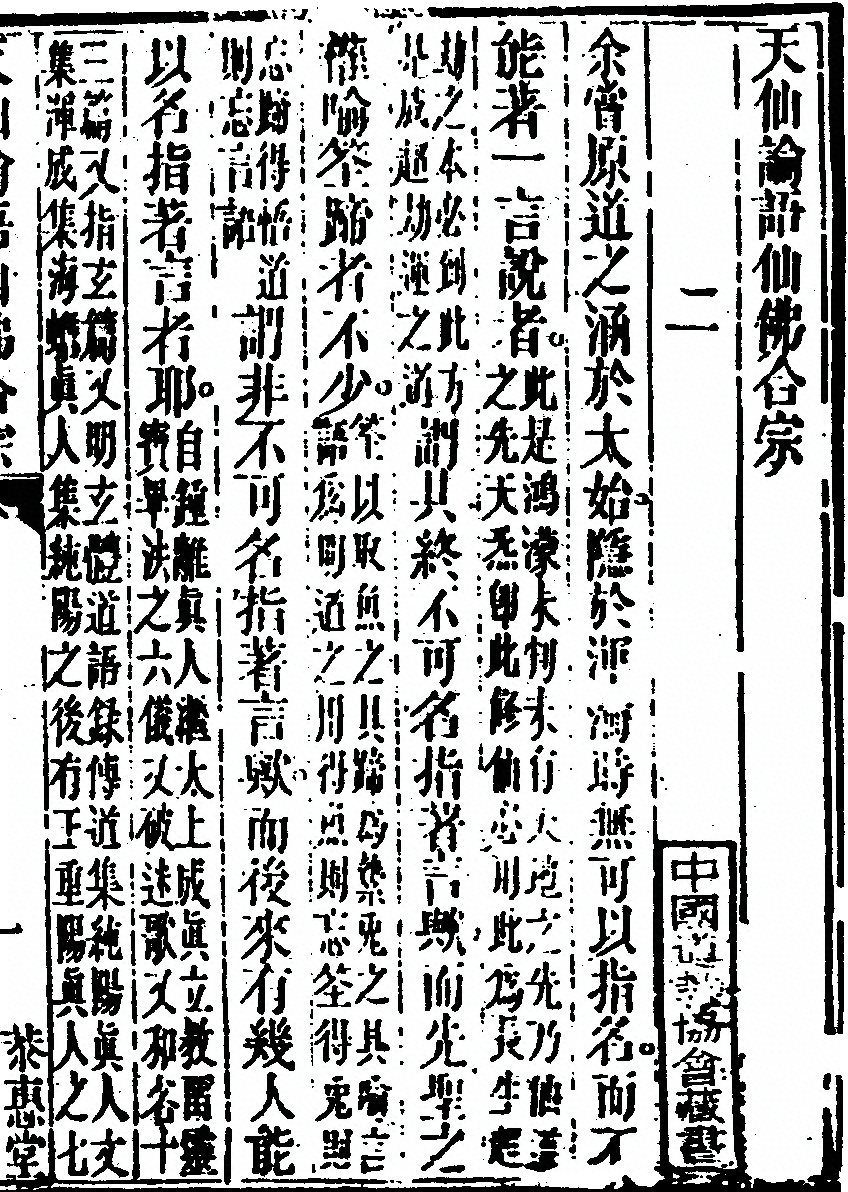 天仙論語仙佛合宗
二
余嘗原道之涵於太始隱於渾淪時無可以指名而不
能著一言說者此是鴻濛未判未有天地之先乃仙道
之先天炁即此修仙必用此為長生超
劫之本必到此方
是成超劫運之道謂其終不可名指著言歟而先聖之
慬喻筌蹄者不少筌以取魚之具蹄為繫兔之具喻言
語為明道之用得魚則忘筌得兔則
忘蹄得悟道
則忘言語謂非不可名指著言歟而後來有幾人能
以名指著言者耶自鍾離真人繼太上成真立教留靈
寶畢法之六儀又破迷歌又和答十
三篇又指玄篇又明玄體道語錄傳道集純陽真人文
集渾成集海蟾真人集純陽之後有王重陽真人之七
恭惠堂
一
中國道教協會藏書